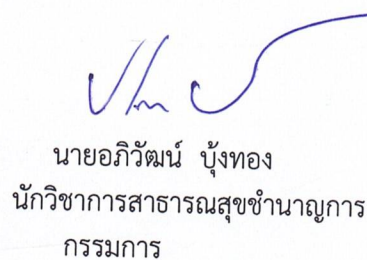 นายอภิวัฒน์ บุ้งทอง
นักวิชาการสาธารณสุขชำนาญการ
กรรมการ